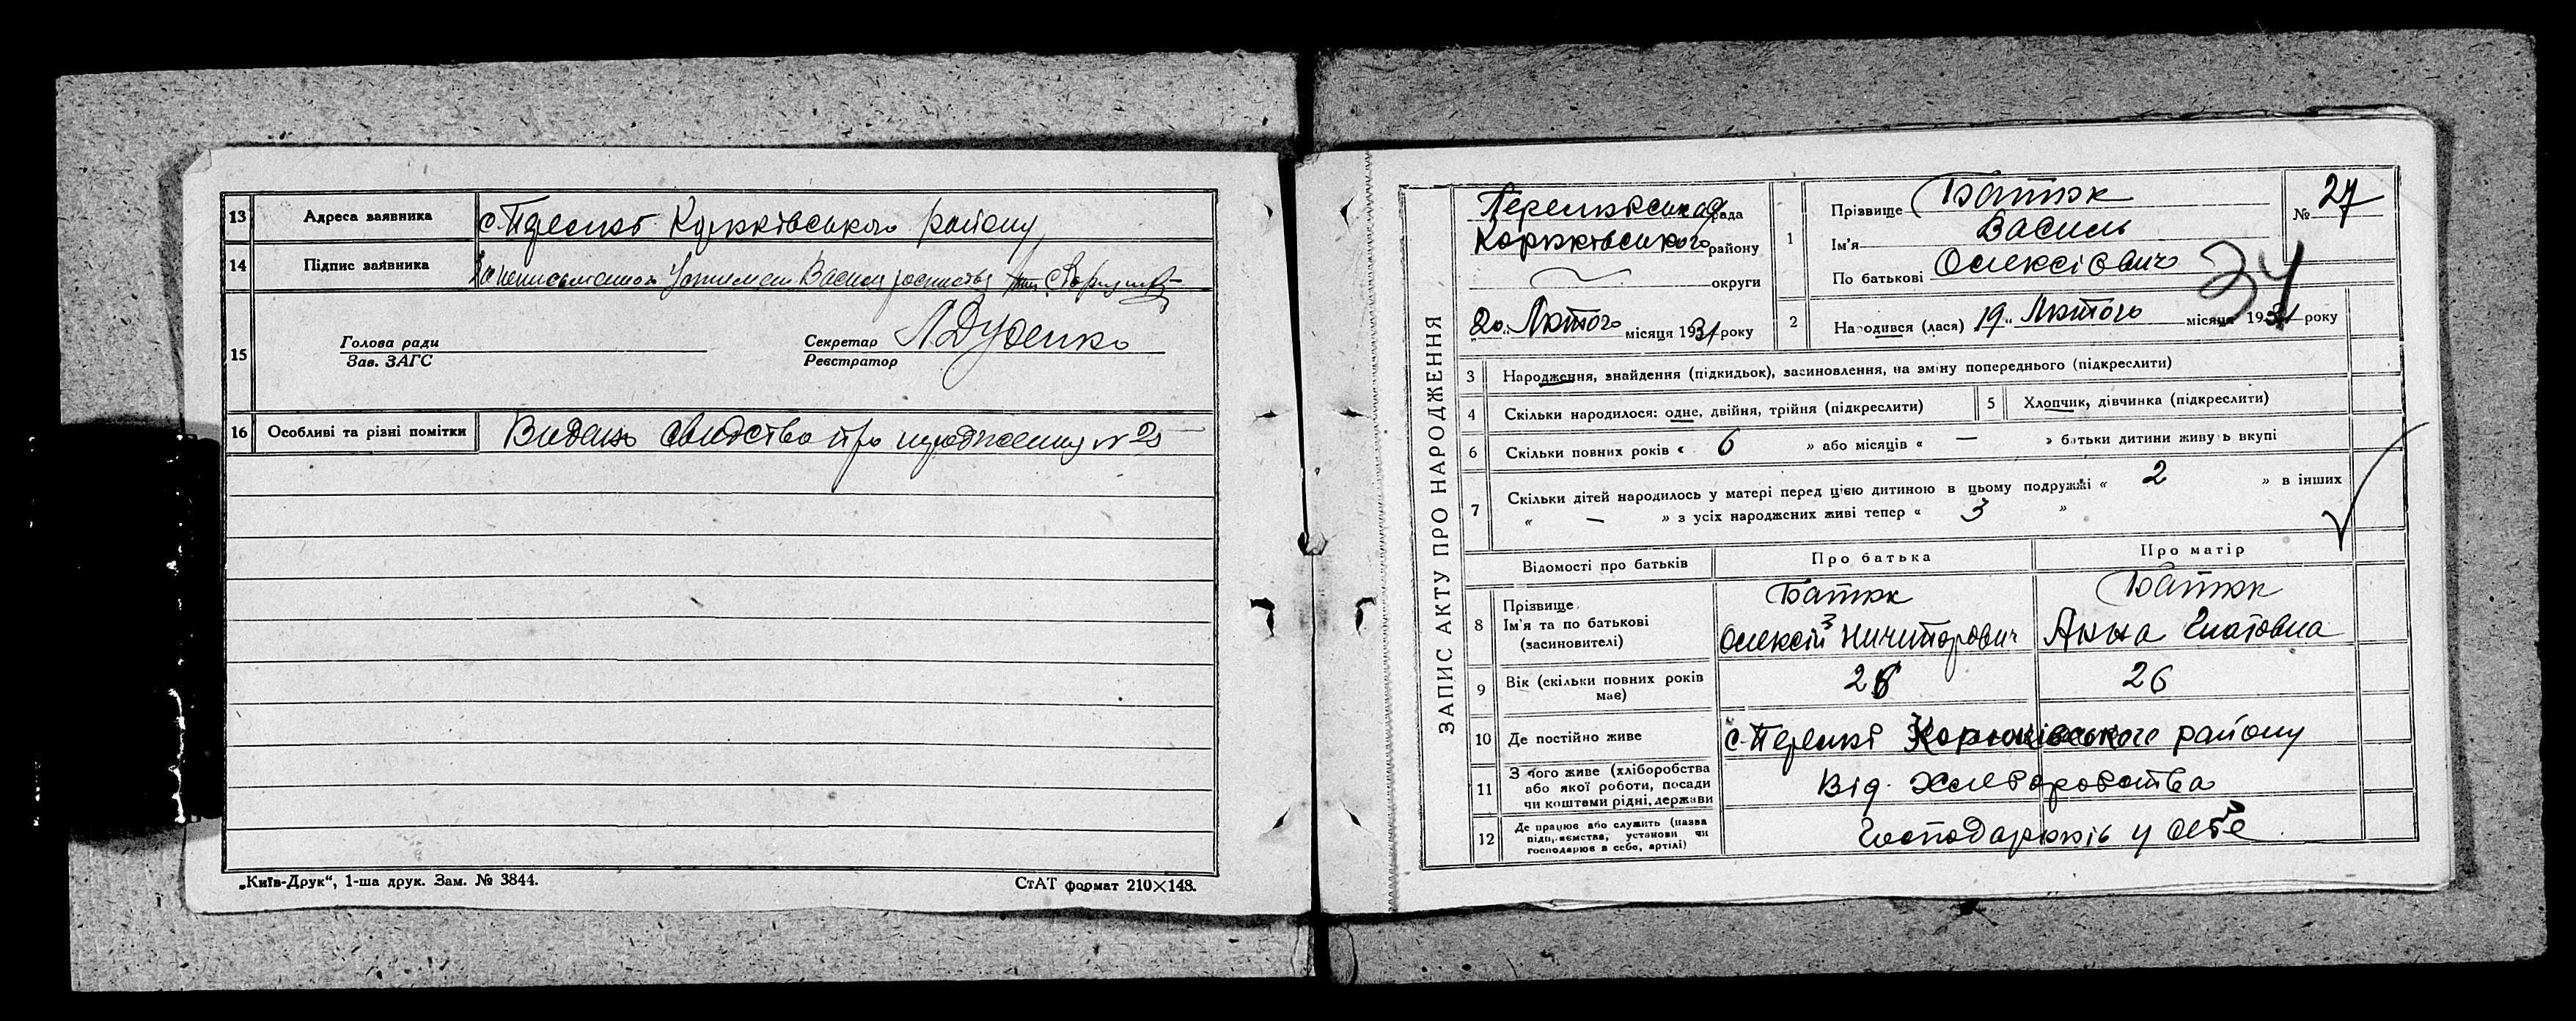 13 Адреса заявника с. Перелюб Корюківського району
14 Підпис заявника За неписьменного Василя росписався
15 Голова ради Зав. ЗАГС Секретар Реєстратор Л Дуденко
16 Особливі та різні помітки Видано свидство про народження № 25
„Київ-Друк“, 1-ша друк. Зам. № 3844. СтАТ формат 210×148.
ЗАПИС АКТУ ПРО НАРОДЖЕННЯ
Перелюбська рада
Корюківського району
округи
„20„ Лютого місяця 1931 року
1 Прізвище Батюк
Ім'я Василь
По батькові Олексієвич
№ 27
34
2 Народився (лася) 19 „ Лютого місяця 1931 року
3 Народження, знайдення (підкидьок), засиновлення, на зміну попереднього (підкреслити)
4 Скільки народилося: одне, двійня, трійня (підкреслити) 5 Хлопчик, дівчинка (підкреслити)
6 Скільки повних років « 6 » або місяців « — » батьки дитини живуть вкупі
7 Скільки дітей народилось у матері перед цією дитиною в цьому подружжі « 2 » в інших
« — » з усіх народжених живі тепер « 3 »
Відомості про батьків Про батька Про матір
8 Прізвище Ім'я та по батькові (засиновителі)
Батюк Олексій Ничипорович
Батюк Анна Гнатовна
9 Вік (скільки повних років має) 26 26
10 Де постійно живе с. Перелюб Корюківського району
11 З чого живе (хліборобства або якої роботи, посади чи коштами рідні, держави Від Хлеборобства
12 Де працює або служить (назва підприємства, установи чи господарює в себе, артілі) Господарюють у себе